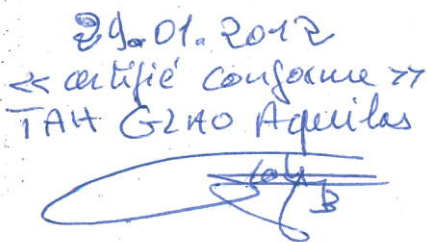 29.01.2012
<< certifié conforme >>
TAH GZAO Aquilas